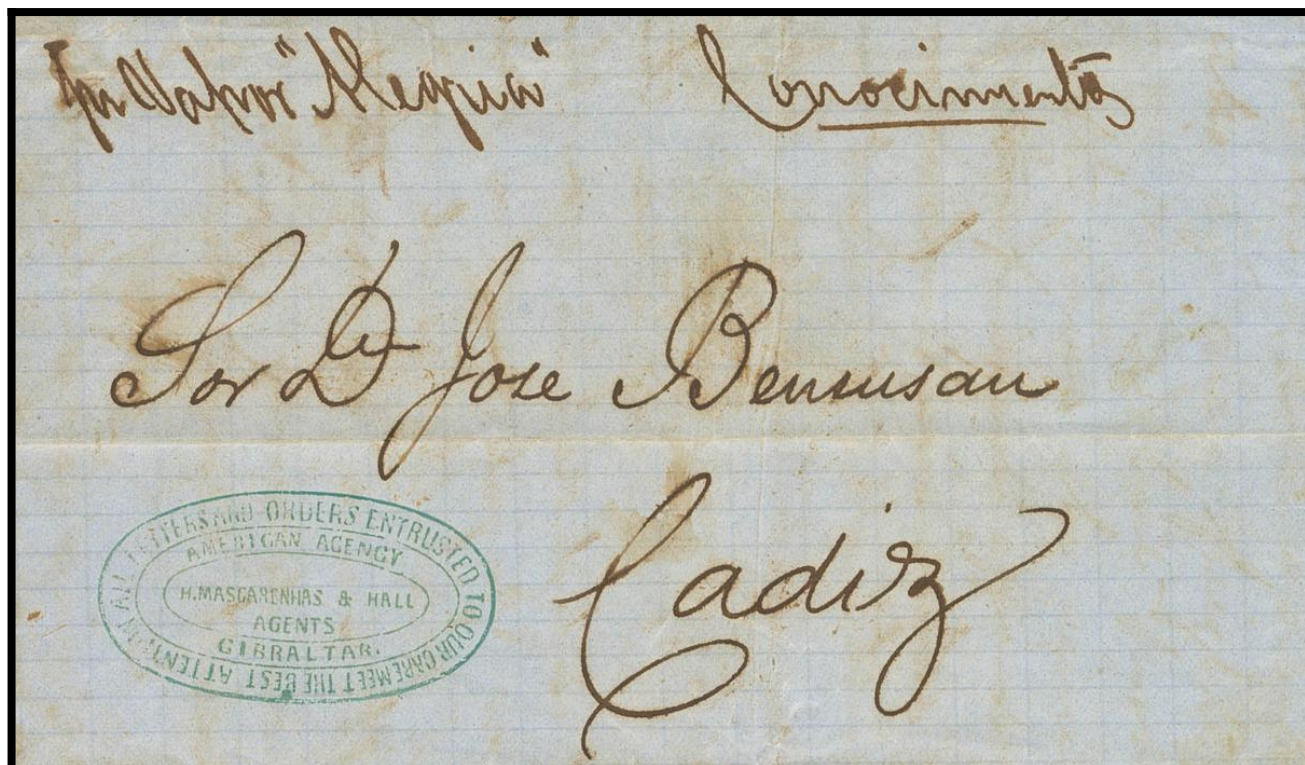 Por Vapor "Alegria" Conocimento
Sor Dn Jose Benunsan
Cadiz
ALL LETTERS AND ORDERS ENTRUSTED TO OUR CARE MEET THE BEST ATTENTION
AMERICAN AGENCY
H. MASCARENHAS & HALL
AGENTS
GIBRALTAR.